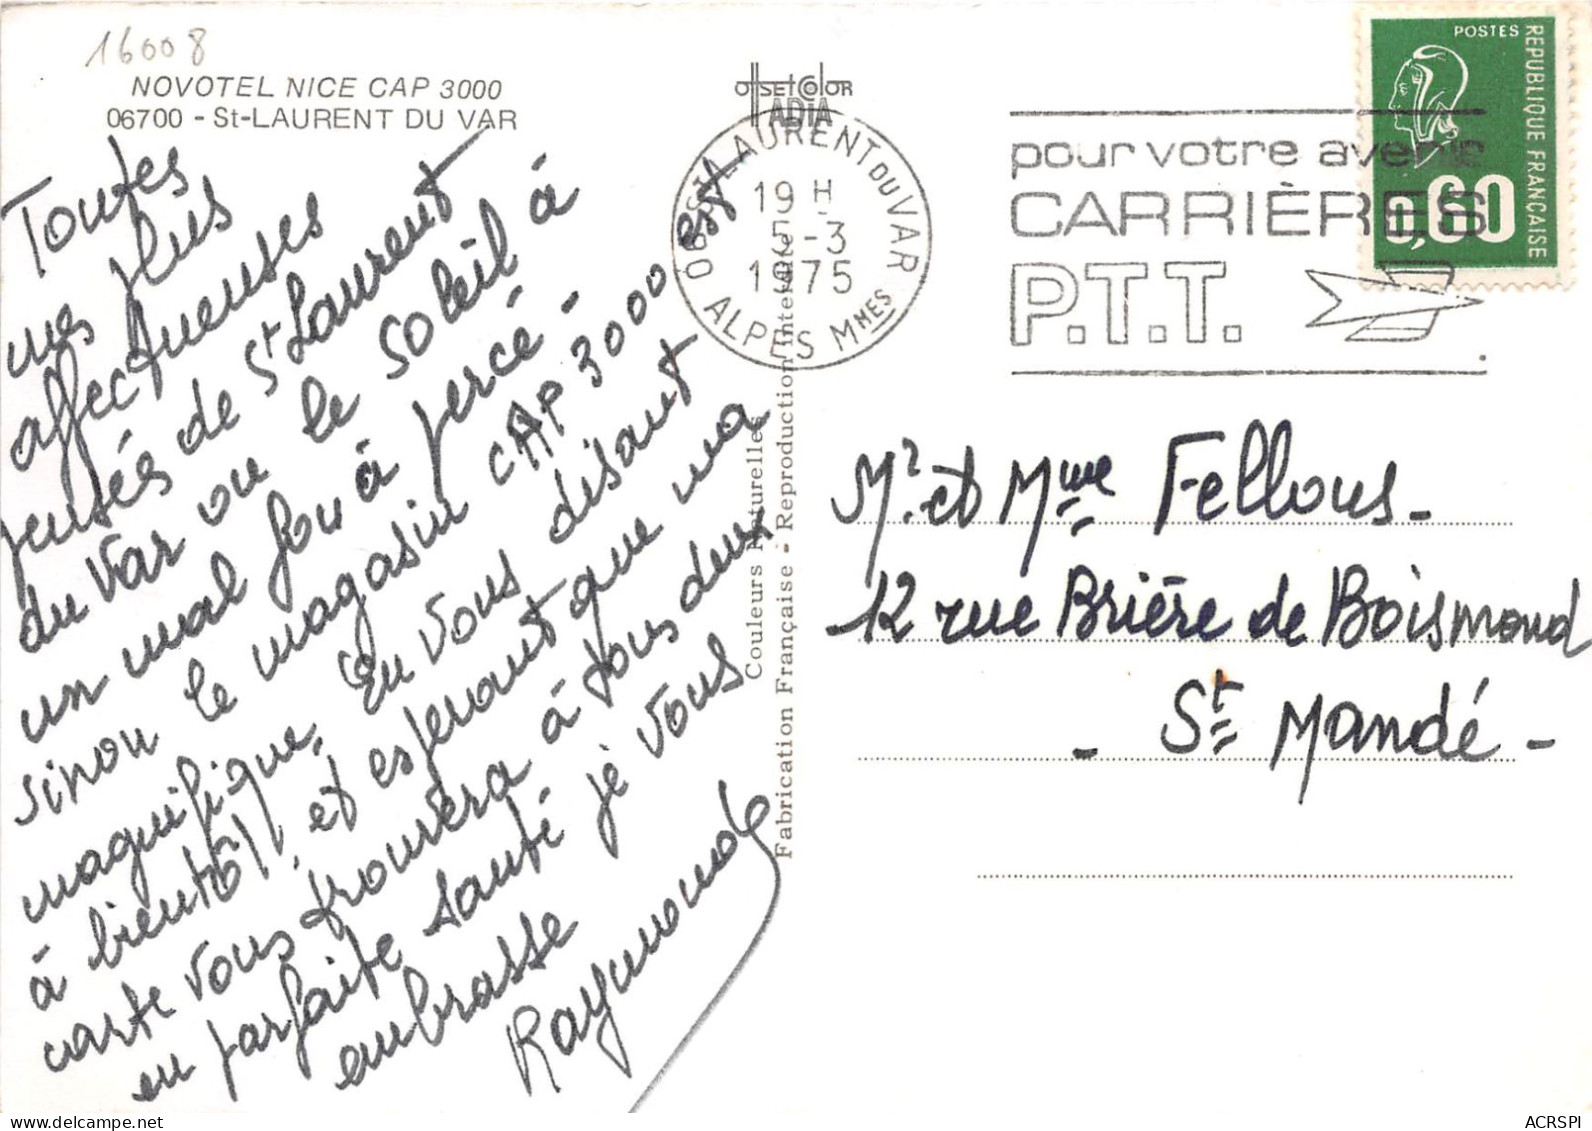 16008
NOVOTEL NICE CAP 3000
06700 - St-LAURENT DU VAR
Toutes
mes plus
affectueuses
pensées de St Laurent
du Var ou le soleil à
un mal fou à percé -
sinon le magasin CAP 3000 est
magnifique. En vous disant
à bientôt, et esperant que ma
carte vous trouvera à tous deux
en parfaite santé je vous
embrasse
Raymonde
OFFSET COLOR
IADIA
06 ST LAURENT DU VAR
19 H
-3
1975
ALPES MMES
Couleurs Naturelles
Fabrication Française - Reproduction Interdite
pour votre avenir
CARRIÈRES
P.T.T.
POSTES
REPUBLIQUE FRANÇAISE
0,60
Mr. et Mme Fellous -
12 rue Brière de Boismond
- St Mandé -
ACRSPI